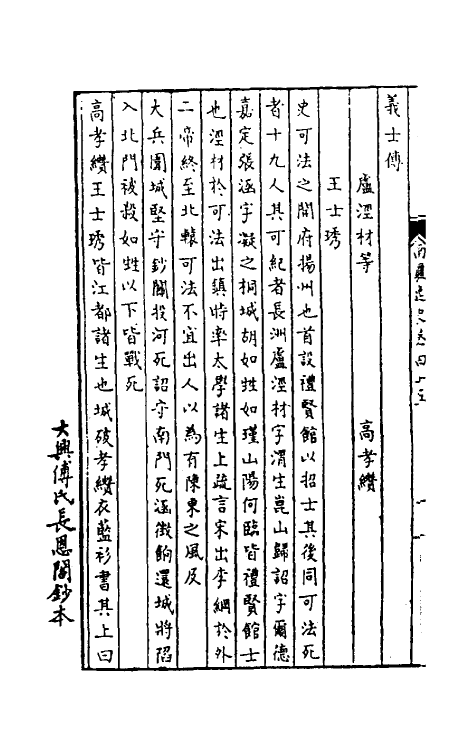 義士傳
盧涇材等
高孝纘
王士琇
史可法之開府揚州也首設禮賢館以招士其後同可法死
者十九人其可紀者長洲盧涇材字渭生崑山歸詔字爾德
嘉定張涵字凝之桐城胡如甡如瑾山陽何臨皆禮賢館士
也涇材於可法出鎮時率太學諸生上疏言宋出李綱於外
二帝終至北轅可法不宜出人以為有陳東之風及
大兵圍城堅守鈔關投河死詔守南門死涵徵餉還城將陷
入北門被殺如甡以下皆戰死
高孝纘王士琇皆江都諸生也城破孝纘衣藍衫書其上曰
南疆逸史卷四十五
大興傅氏長恩閣鈔本